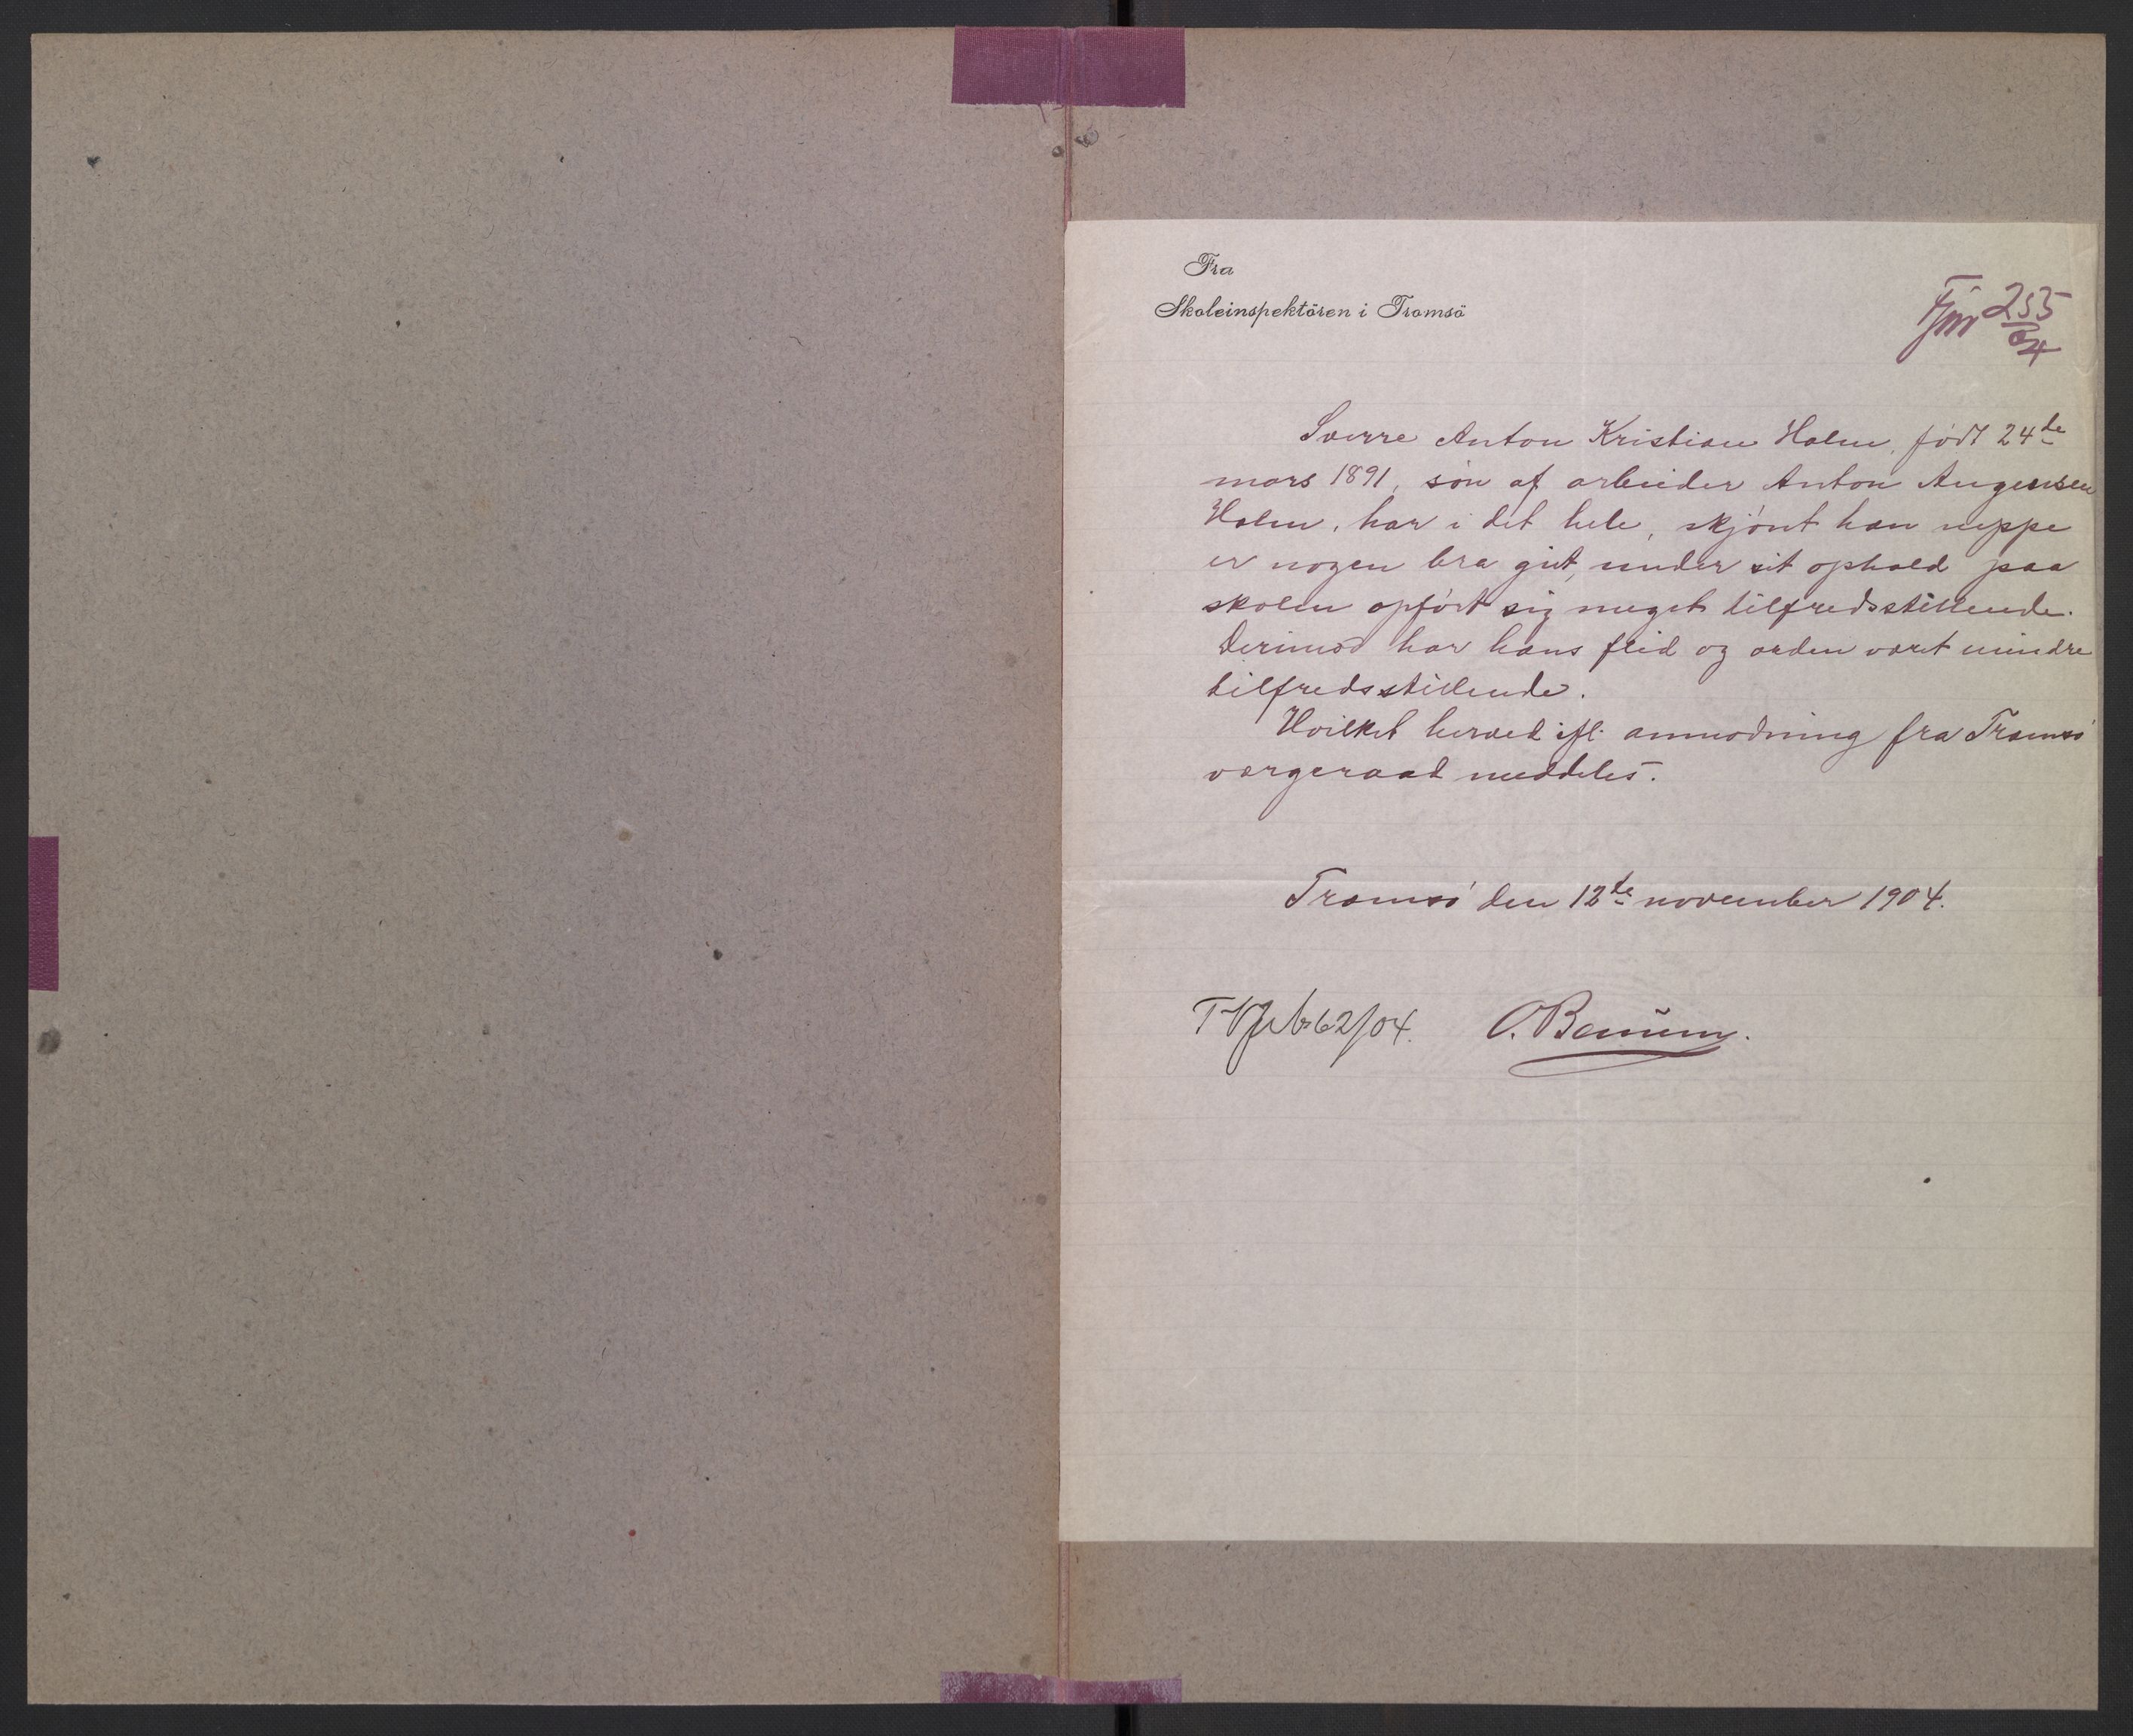 Fra
Skoleinspektören i Tromsö
255
04
Sverre Anton Kristian Holm, född 24de
mars 1891, sön af arbeider Anton Augensen
Holm, har i det hele, skjönt han neppe
er nogen bra gut, under sit ophold paa
skolen opfört sig meget tilfredsstillende.
Derimod har hans flid og orden været mindre
tilfredsstillende.
Hvilket herved ifl. anmodning fra Tromsö
værgeraad meddeles.
Tromsö den 12te november 1904.
62/04. O.